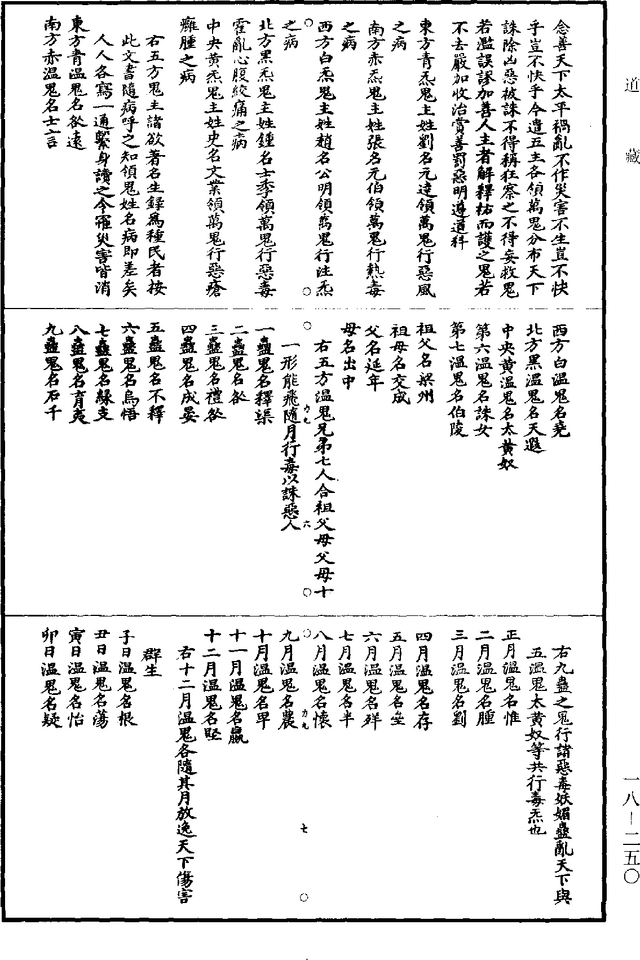 道藏
念善天下太平禍亂不作災害不生豈不快
乎豈不快乎今遣五主各領萬鬼分布天下
誅除凶惡被誅不得稱狂察之不得妄救鬼
若濫誤謬加善人主者解釋祐而護之鬼若
不去嚴加收治賞善罰惡明遵道科
東方青炁鬼主姓劉名元達領萬鬼行惡風
之病
南方赤炁鬼主姓張名元伯領萬鬼行熱毒
之病
西方白炁鬼主姓趙名公明領萬鬼行注炁
之病
北方黑炁鬼主姓鍾名士季領萬鬼行惡毒
霍亂心腹絞痛之病
中央黃炁鬼主姓史名文業領萬鬼行惡瘡
癰腫之病
右五方鬼主諸欲著名生錄爲種民者按
此文書隨病呼之知領鬼姓名病即差矣
人人各寫一通繫身讀之令羅災害皆消
東方青温鬼名咎遠
南方赤温鬼名士言
西方白温鬼名堯
北方黑温鬼名天遐
中央黃温鬼名太黃奴
第六温鬼名誅女
第七温鬼名伯陵
祖父名染州
祖母名交成
父名延年
母名出中
右五方温鬼兄弟七人合祖父母父母十
一形能飛隨月行毒以誅惡人
一蠱鬼名釋渠
二蠱鬼名咎
三蠱鬼名禮咎
四蠱鬼名成晏
五蠱鬼名不釋
六蠱鬼名烏悟
七蠱鬼名蘇支
八蠱鬼名育夷
九蠱鬼名石千
右九蠱之鬼行諸惡毒妖媚蠱亂天下與
五温鬼太黃奴等共行毒炁也
正月温鬼名惟
二月温鬼名腫
三月温鬼名劉
四月温鬼名存
五月温鬼名坐
六月温鬼名殍
七月温鬼名半
八月温鬼名懐
九月温鬼名農
十月温鬼名早
十一月温鬼名羸
十二月温鬼名坚
右十二月温鬼各隨其月放逸天下傷害
群生
子日温鬼名根
丑日温鬼名蕩
寅日温鬼名怡
卯日温鬼名疑
力九 六
力九 七
一八—二五〇